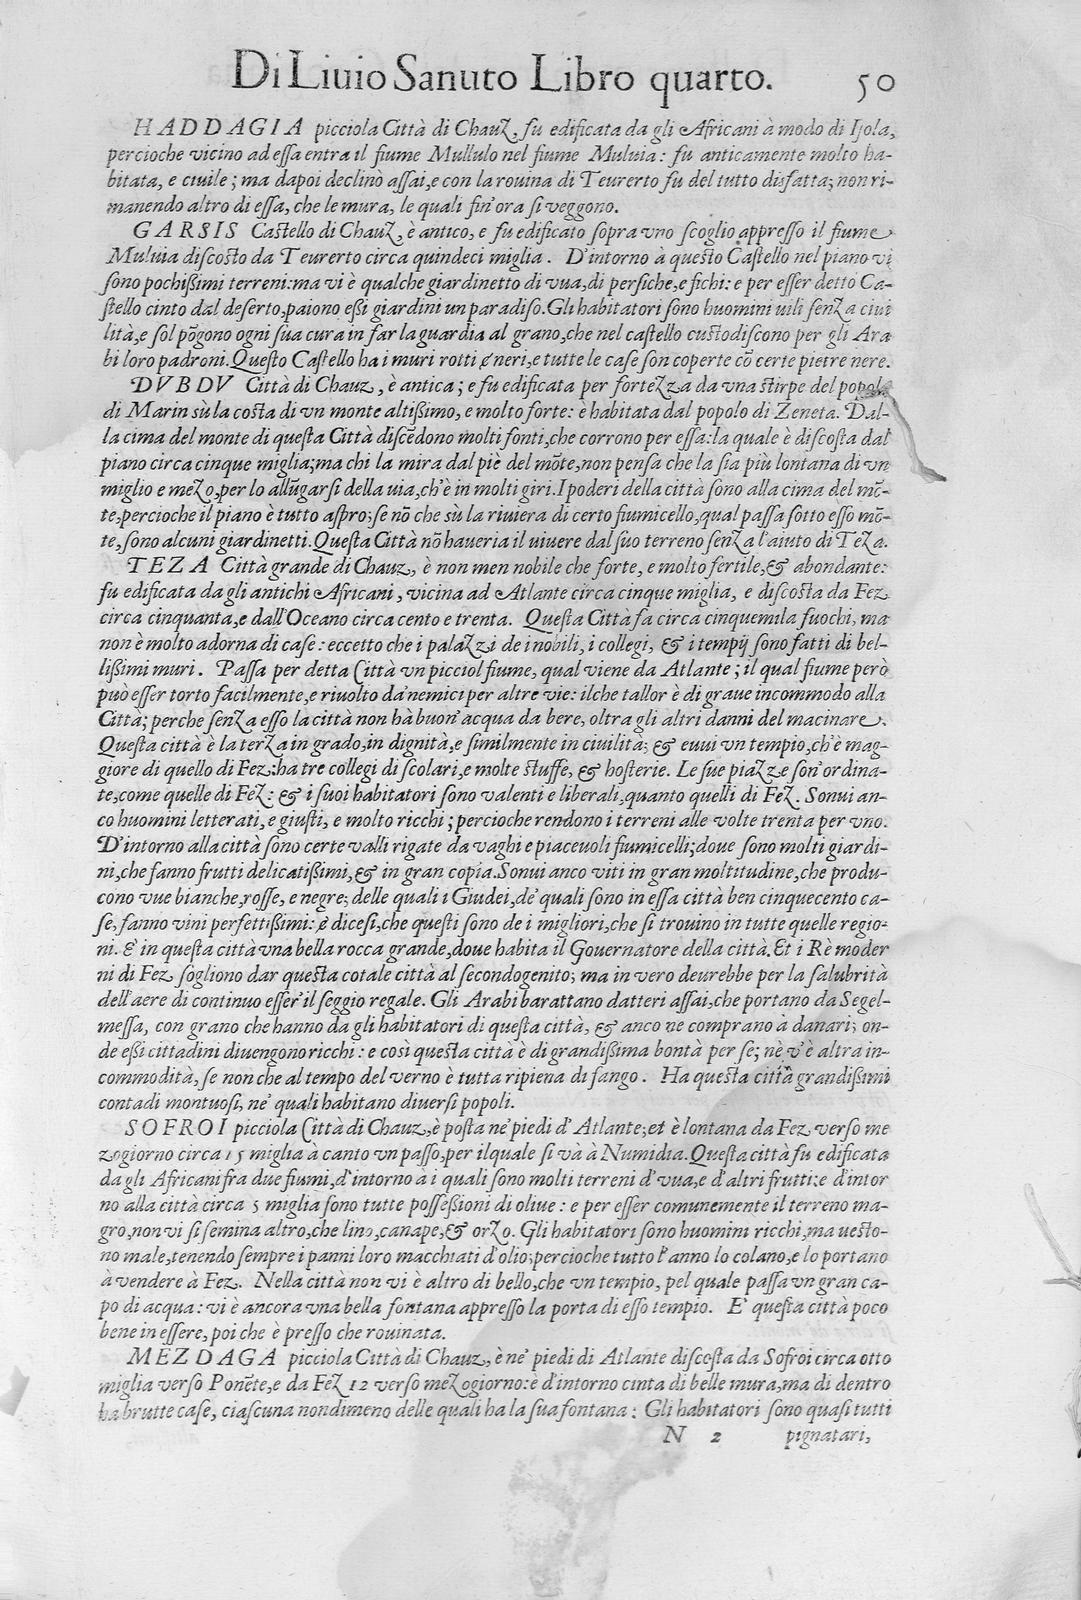 Di Liuio Sanuto Libro quarto. 50
HADDAGIA picciola Città di Chauz, fu edificata da gli Africani à modo di Isola,
percioche vicino ad essa entra il fiume Mullulo nel fiume Muluia: fu anticamente molto ha-
bitata, e ciuile; ma dapoi declinò assai, e con la rouina di Teurerto fu del tutto disfatta; non ri-
manendo altro di essa, che le mura, le quali fin'ora si veggono.
GARSIS Castello di Chauz, è antico, e fu edificato sopra vno scoglio appresso il fiume
Muluia discosto da Teurerto circa quindeci miglia. D'intorno à questo Castello nel piano vi
sono pochissimi terreni: ma vi è qualche giardinetto di vua, di persiche, e fichi: e per esser detto Ca-
stello cinto dal deserto, paiono essi giardini un paradiso. Gli habitatori sono huomini uili senza ciui
lità, e sol põgono ogni sua cura in far la guardia al grano, che nel castello custodiscono per gli Ara
bi loro padroni. Questo Castello ha i muri rotti e neri, e tutte le case son coperte cõ certe pietre nere.
DVBDV Città di Chauz, è antica; e fu edificata per fortezza da vna stirpe del popolo
di Marin sù la costa di vn monte altissimo, e molto forte: è habitata dal popolo di Zeneta. Dal-
la cima del monte di questa Città discẽdono molti fonti, che corrono per essa: la quale è discosta dal
piano circa cinque miglia; ma chi la mira dal piè del mõte, non pensa che la sia più lontana di vn
miglio e mezo, per lo allũgarsi della uia, ch'è in molti giri. I poderi della città sono alla cima del mõ-
te, percioche il piano è tutto aspro; se nõ che sù la riviera di certo fiumicello, qual passa sotto esso mõ-
te, sono alcuni giardinetti. Questa Città nõ haueria il uiuere dal suo terreno senza l'aiuto di Teza.
TEZA Città grande di Chauz, è non men nobile che forte, e molto fertile, & abondante:
fu edificata da gli antichi Africani, vicina ad Atlante circa cinque miglia, e discosta da Fez
circa cinquanta, e dall'Oceano circa cento e trenta. Questa Città fa circa cinquemila fuochi, ma
non è molto adorna di case: eccetto che i palazzi de i nobili, i collegi, & i tempij sono fatti di bel-
lissimi muri. Passa per detta Città vn picciol fiume, qual viene da Atlante; il qual fiume però
può esser torto facilmente, e riuolto da' nemici per altre vie: ilche tallor è di graue incommodo alla
Città; perche senza esso la città non hà buon'acqua da bere, oltra gli altri danni del macinare.
Questa città è la terza in grado, in dignità, e similmente in ciuilità; & euui vn tempio, ch'è mag-
giore di quello di Fez: ha tre collegi di scolari, e molte stuffe, & hosterie. Le sue piazze son' ordina-
te, come quelle di Fez: & i suoi habitatori sono valenti e liberali, quanto quelli di Fez. Sonui an-
co huomini letterati, e giusti, e molto ricchi; percioche rendono i terreni alle volte trenta per vno.
D'intorno alla città sono certe valli rigate da vaghi e piaceuoli fiumicelli; doue sono molti giardi-
ni, che fanno frutti delicatissimi, & in gran copia. Sonui anco viti in gran moltitudine, che produ-
cono vue bianche, rosse, e negre; delle quali i Giudei, de' quali sono in essa città ben cinquecento ca-
se, fanno vini perfettissimi: e dicesi, che questi sono de i migliori, che si trouino in tutte quelle regio-
ni. E' in questa città vna bella rocca grande, doue habita il Gouernatore della città. Et i Rè moder
ni di Fez sogliono dar questa cotale città al secondogenito; ma in vero deurebbe per la salubrità
dell'aere di continuo esser' il seggio regale. Gli Arabi barattano datteri assai, che portano da Segel-
messa, con grano che hanno da gli habitatori di questa città, & anco ne comprano à danari; on-
de essi cittadini diuengono ricchi: e così questa città è di grandissima bontà per se; nè v'è altra in-
commodità, se non che al tempo del verno è tutta ripiena di fango. Ha questa città grandissimi
contadi montuosi, ne' quali habitano diuersi popoli.
SOFROI picciola Città di Chauz, è posta ne' piedi d'Atlante; et è lontana da Fez verso me
zogiorno circa 15 miglia à canto vn passo, per ilquale si và à Numidia. Questa città fu edificata
da gli Africani fra due fiumi, d'intorno à i quali sono molti terreni d'vua, e d'altri frutti: e d'intor
no alla città circa 5 miglia sono tutte possessioni di oliue: e per esser comunemente il terreno ma-
gro, non vi si semina altro, che lino, canape, & orzo. Gli habitatori sono huomini ricchi, ma uesto-
no male, tenendo sempre i panni loro macchiati d'olio; percioche tutto l'anno lo colano, e lo portano
à vendere à Fez. Nella città non vi è altro di bello, che vn tempio, pel quale passa vn gran ca-
po di acqua: vi è ancora vna bella fontana appresso la porta di esso tempio. E' questa città poco
bene in essere, poi che è presso che rouinata.
MEZDAGA picciola Città di Chauz, è ne' piedi di Atlante discosta da Sofroi circa otto
miglia verso Ponẽte, e da Fez 12 verso mezogiorno: è d'intorno cinta di belle mura, ma di dentro
ha brutte case, ciascuna nondimeno delle quali ha la sua fontana: Gli habitatori sono quasi tutti
N 2 pignatari,